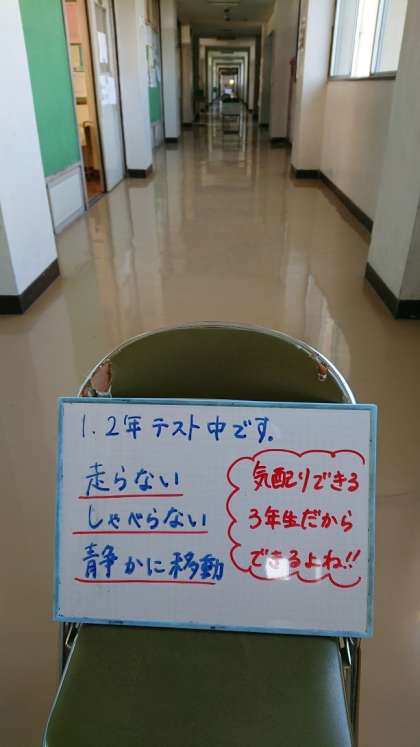 1.2年テスト中です。
走らない
しゃべらない
静かに移動
気配りできる
3年生だから
できるよね!!